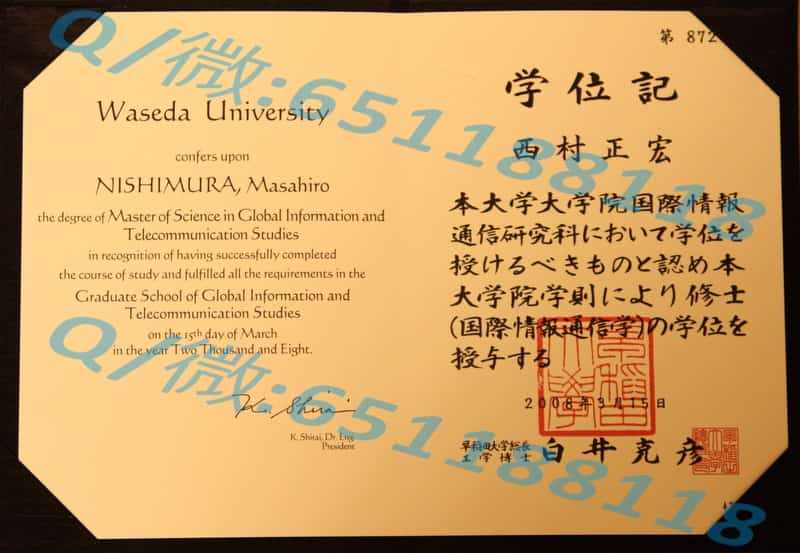 Waseda University
confers upon
NISHIMURA, Masahiro
the degree of Master of Science in Global Information and
Telecommunication Studies
in recognition of having successfully completed
the course of study and fulfilled all the requirements in the
Graduate School of Global Information and
Telecommunication Studies
on the 15th day of March
in the year Two Thousand and Eight.
K. Shirai
K. Shirai, Dr. Eng.
President
第 872
学位記
西村正宏
本大学大学院国際情報
通信研究科において学位を
授けるべきものと認め本
大学院学則により修士
(国際情報通信学)の学位を
授与する
2008年3月15日
早稲田大学総長
工学博士
白井克彦
Q/微:651188118
Q/微:651188118